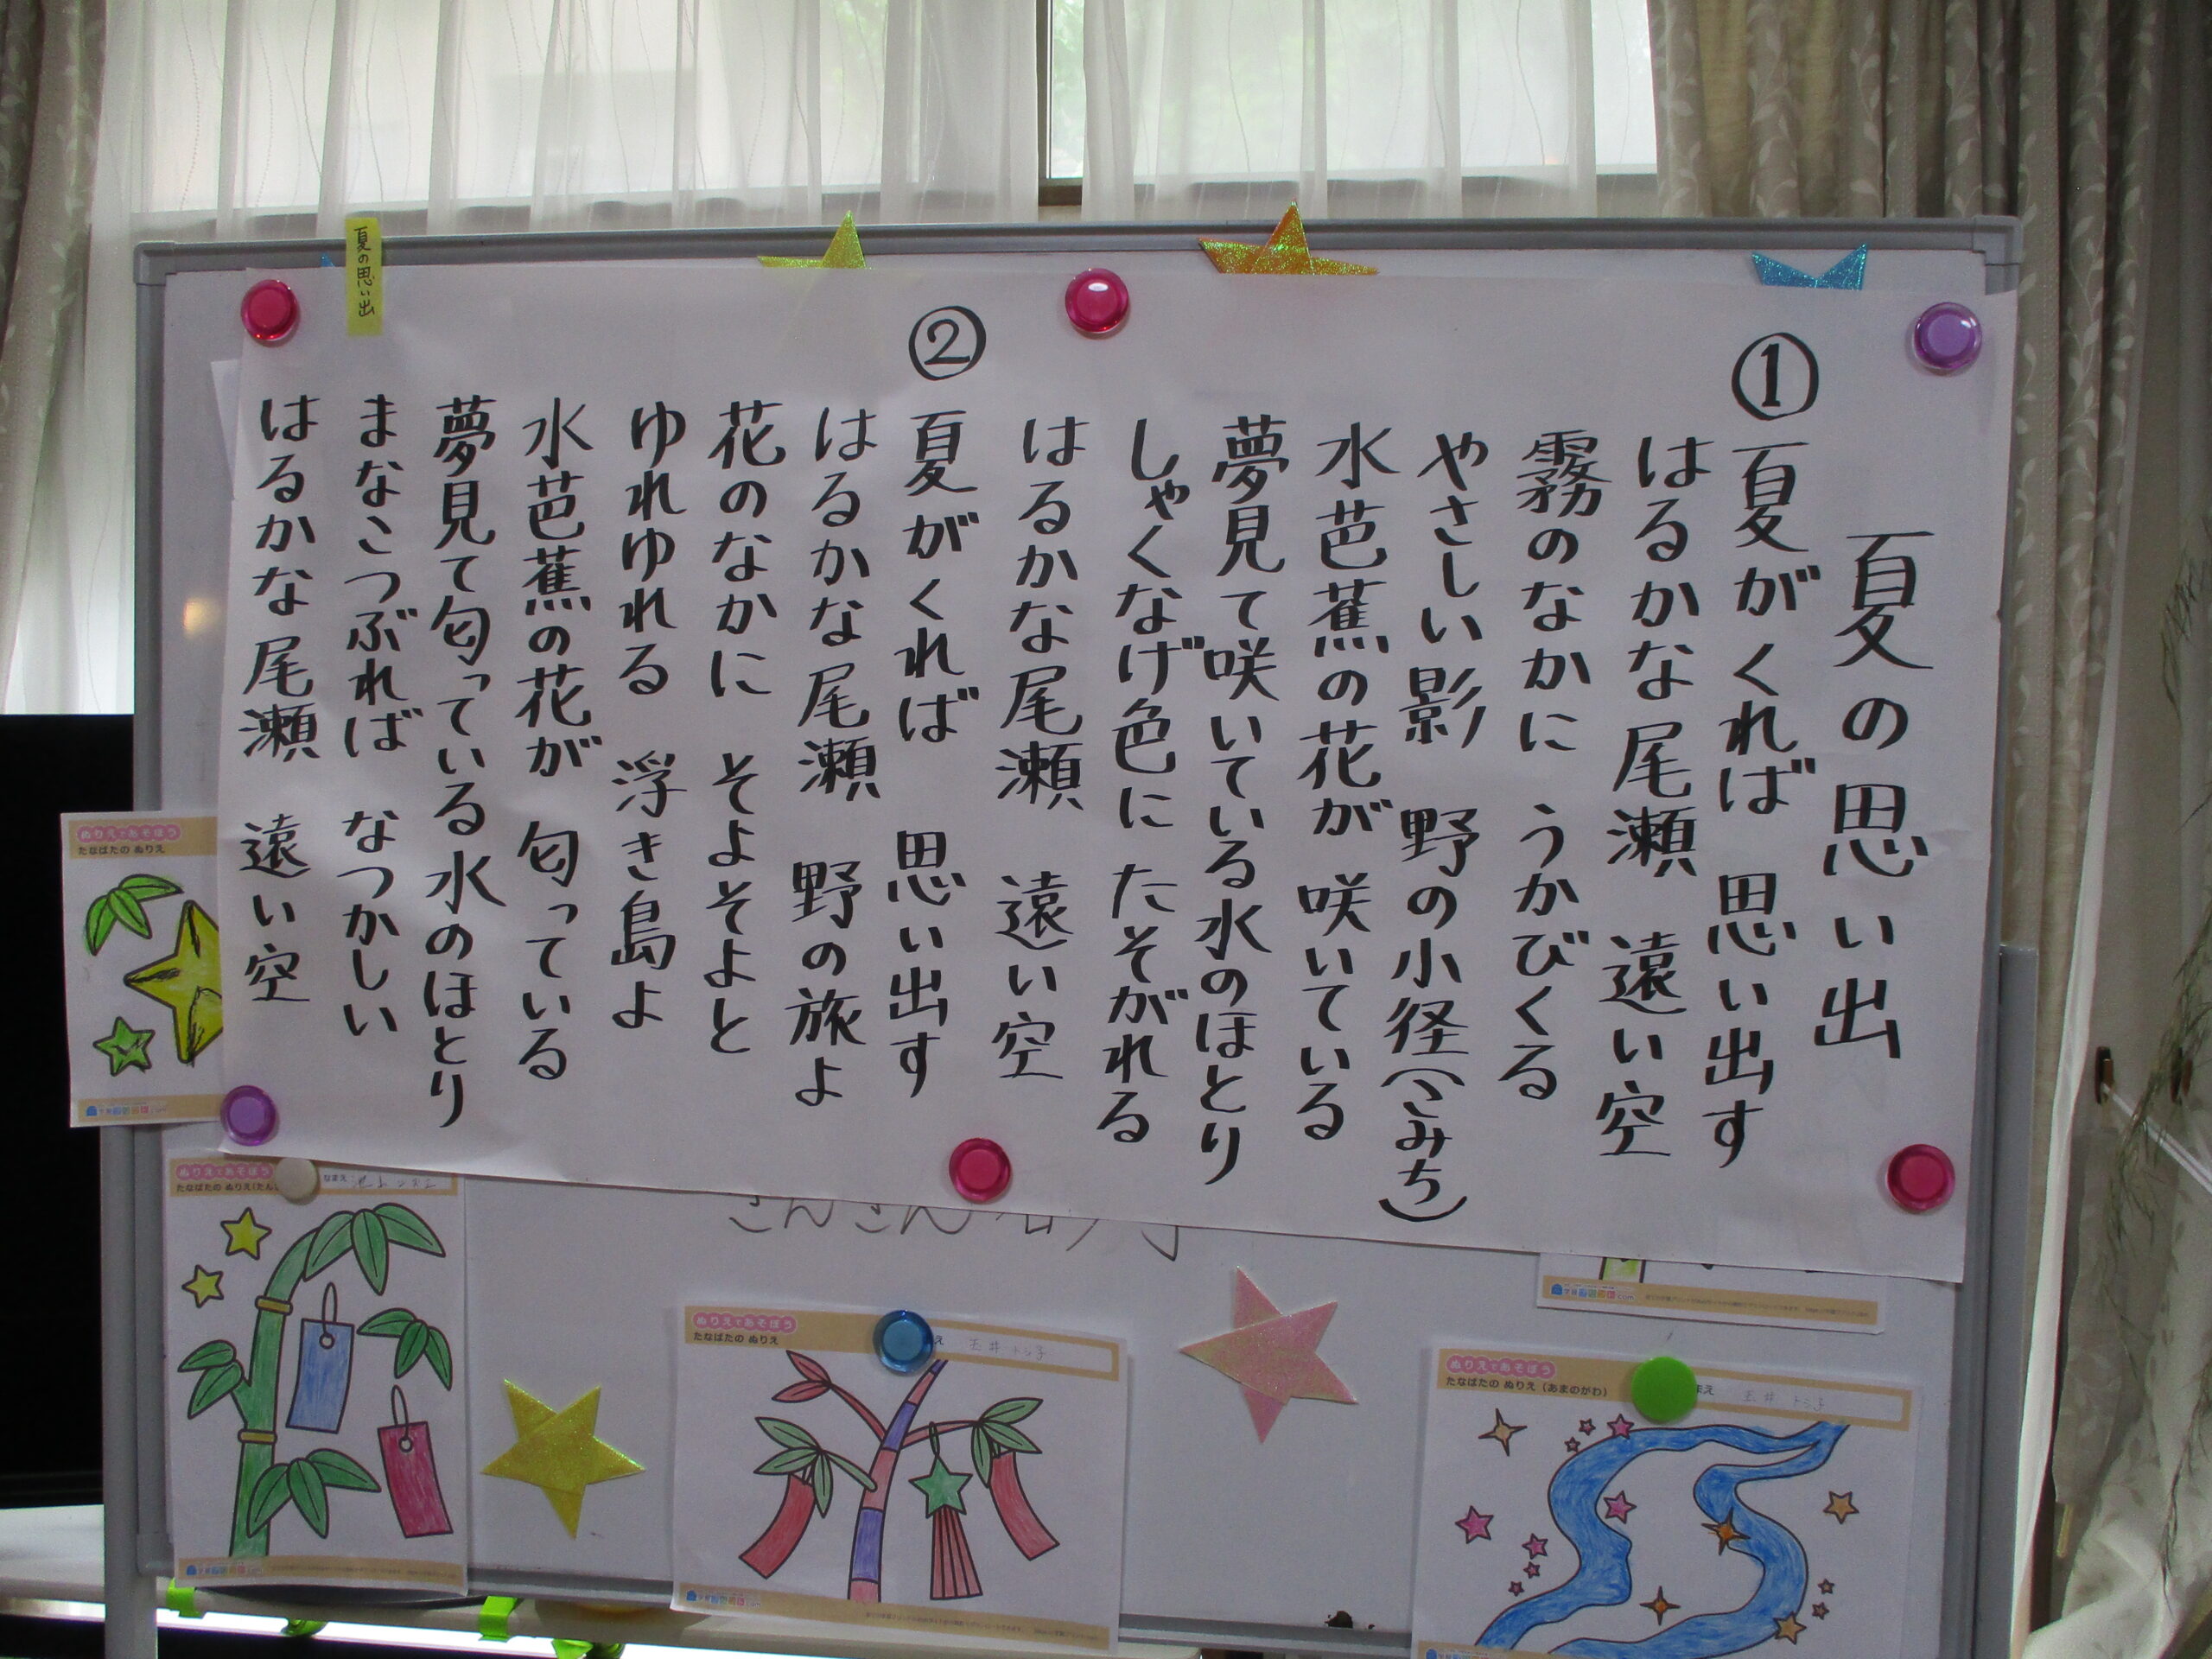 夏の思い出
夏の思い出
① 夏がくれば 思い出す
はるかな尾瀬 遠い空
霧のなかに うかびくる
やさしい影 野の小径(こみち)
水芭蕉の花が 咲いている
夢見て咲いている水のほとり
しゃくなげ色に たそがれる
はるかな尾瀬 遠い空
② 夏がくれば 思い出す
はるかな尾瀬 野の旅よ
花のなかに そよそよと
ゆれゆれる 浮き島よ
水芭蕉の花が 匂っている
夢見て匂っている水のほとり
まなこつぶれば なつかしい
はるかな尾瀬 遠い空
ぬりえであそぼう
たなばたの ぬりえ
ぬりえであそぼう
たなばたの ぬりえ(たん
なまえ
ぬりえであそぼう
たなばたの ぬりえ
え 玉井トシ子
ぬりえであそぼう
たなばたの ぬりえ(あまのがわ)
まえ 玉井トシ子